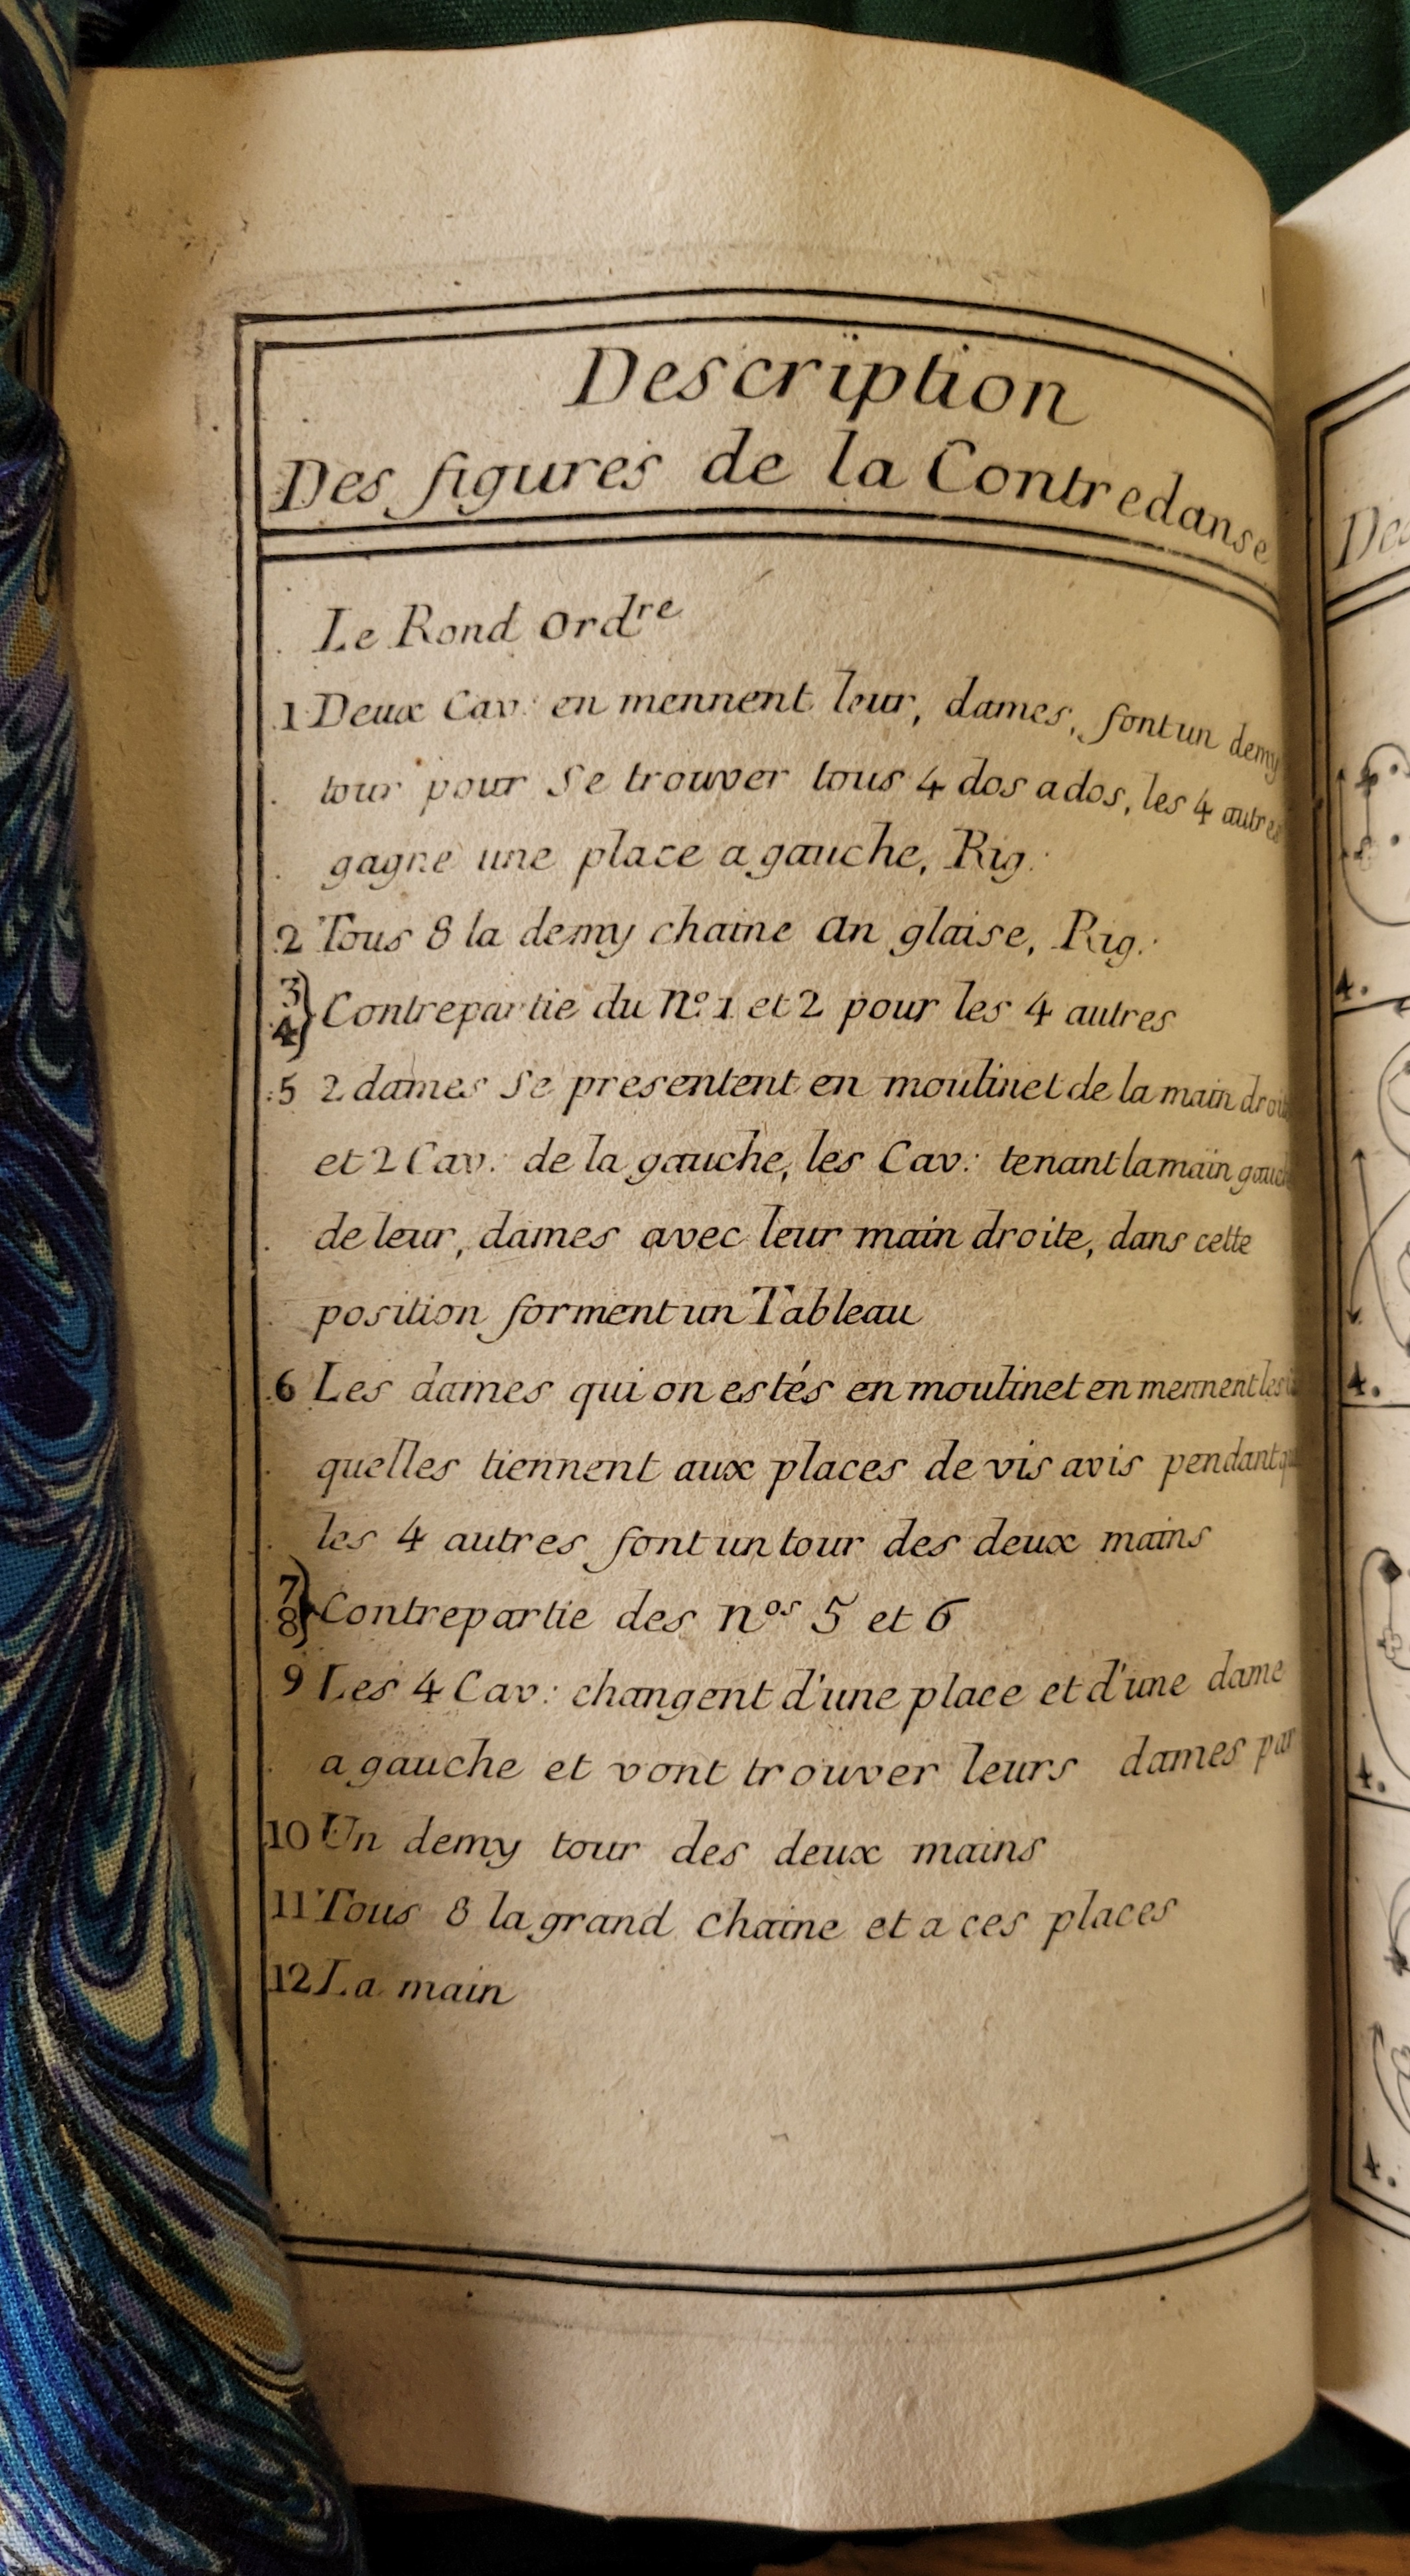 Description
Des figures de la Contredanse
Le Rond Ordre
1 Deux Cav: en mennent leur, dames, font un demy
tour pour Se trouver tous 4 dos a dos, les 4 autres
gagne une place a gauche, Rig:
2 Tous 8 la demy chaine an glaise, Rig:
3
4 } Contrepartie du No. 1 et 2 pour les 4 autres
5 2 dames Se presentent en moulinet de la main droite
et 2 Cav: de la gauche, les Cav: tenant la main
de leur, dames avec leur main droite, dans cette
position forment un Tableau
6 Les dames qui on estés en moulinet en mennent
quelles tiennent aux places de vis avis pendant
les 4 autres font un tour des deux mains
7
8 } Contrepartie des nos 5 et 6
9 Les 4 Cav: changent d'une place et d'une dame
a gauche et vont trouver leurs dames par
10 Un demy tour des deux mains
11 Tous 8 la grand chaine et a ces places
12 La main
4.
4.
4.
4.